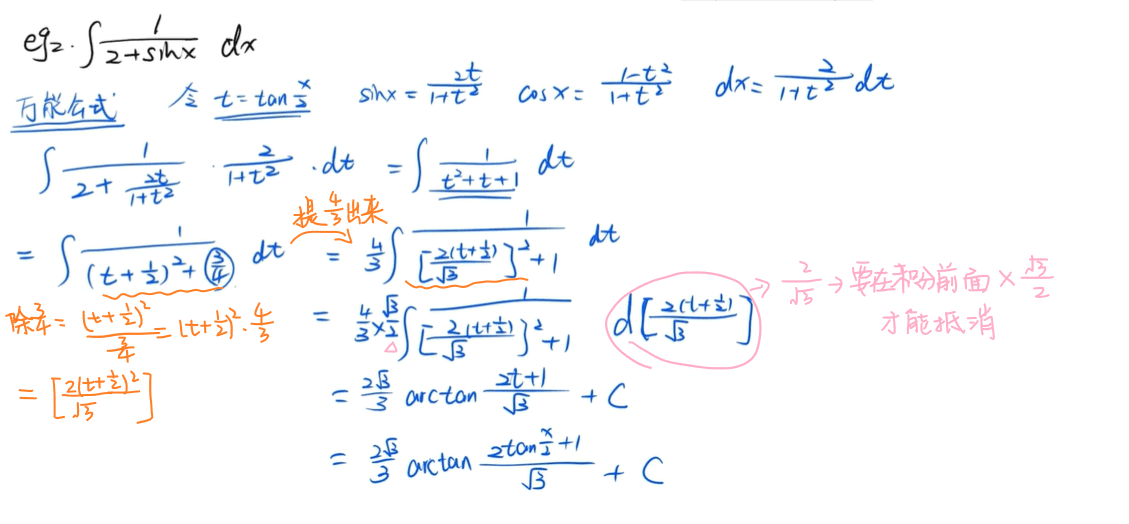 eg2. ∫ 1/(2+sinx) dx
万能公式 令 t=tan x/2 sinx = 2t/(1+t²) cosx = (1-t²)/(1+t²) dx = 2/(1+t²) dt
∫ 1/(2 + 2t/(1+t²)) · 2/(1+t²) · dt = ∫ 1/(t²+t+1) dt
提4/3出来
= ∫ 1/((t+1/2)²+3/4) dt = 4/3 ∫ 1/([2(t+1/2)/√3]²+1) dt
→ 2/√3 → 要在积分前面 × √3/2
才能抵消
除3/4 = (t+1/2)²/(3/4) = (t+1/2)²·4/3
= 4/3 × √3/2 ∫ 1/([2(t+1/2)/√3]²+1) d[2(t+1/2)/√3]
= [2(t+1/2)²/√3]
= 2√3/3 arctan (2t+1)/√3 + C
= 2√3/3 arctan (2tan x/2 +1)/√3 + C